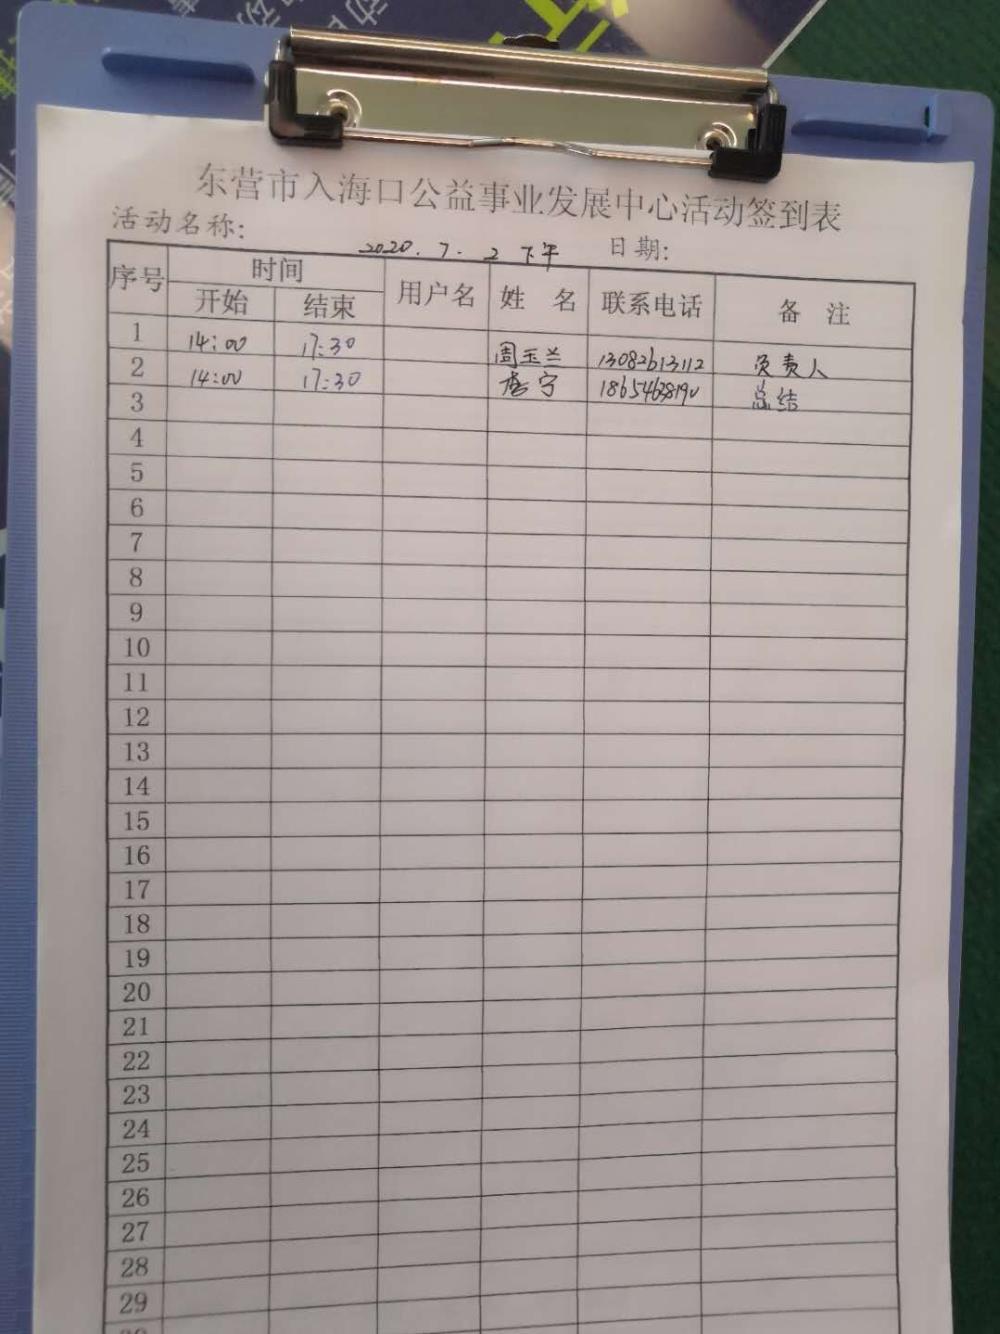 东营市入海口公益事业发展中心活动签到表
活动名称: 2020.7.2 下午 日期:
序号 时间 用户名 姓 名 联系电话 备 注
开始 结束
1 14:00 17:30 周玉兰 13082613112 负责人
2 14:00 17:30 宁 总结
3
4
5
6
7
8
9
10
11
12
13
14
15
16
17
18
19
20
21
22
23
24
25
26
27
28
29